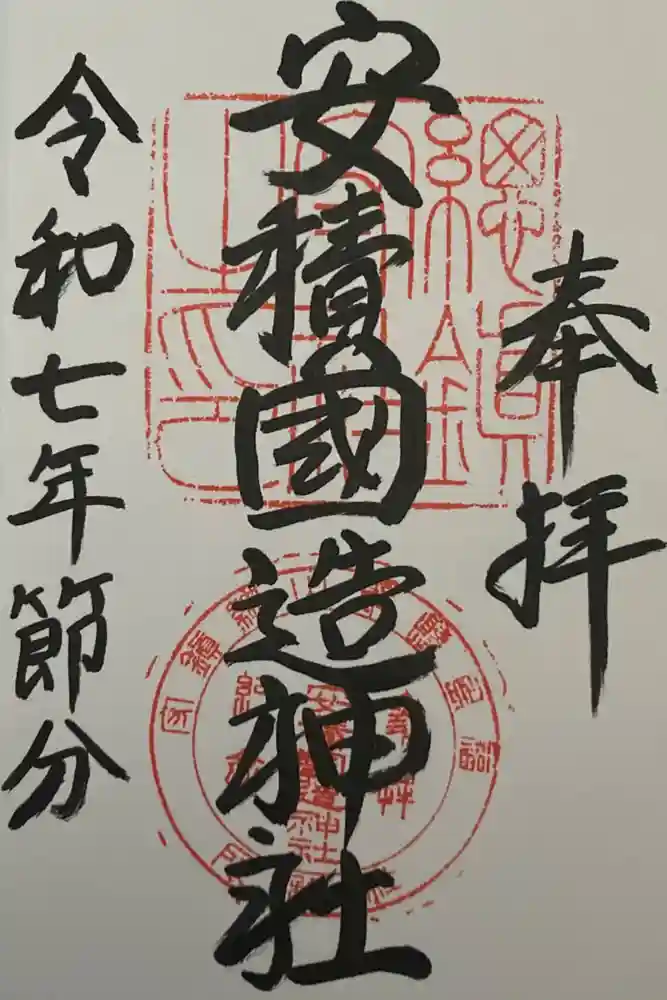 奉拝
安積國造神社
令和七年節分